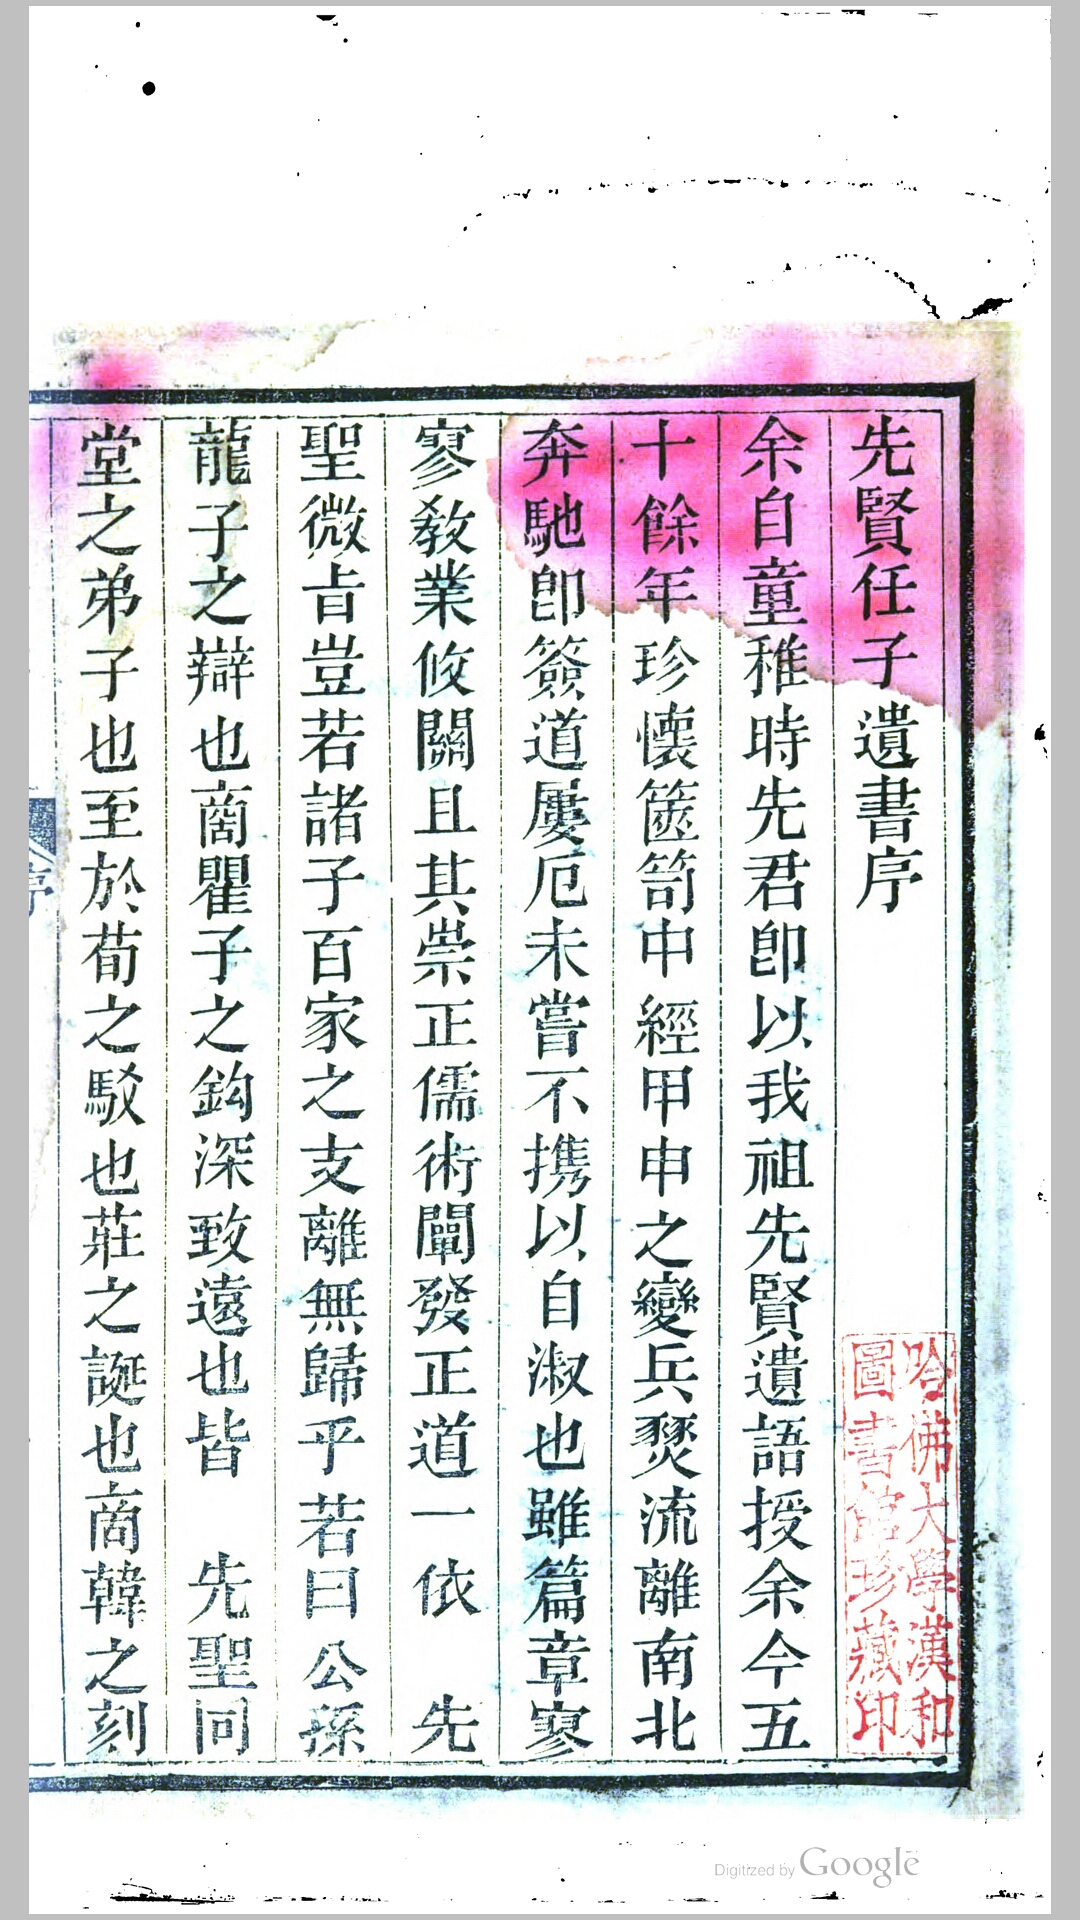 先賢任子遺書序
余自童稚時先君卽以我祖先賢遺語授余今五
十餘年珍懐篋笥中經甲申之變兵燹流離南北
奔馳卽簽道屢厄未嘗不携以自淑也雖篇章寥
寥教業攸關且其崇正儒術闡發正道一依　先
聖微旨豈若諸子百家之支離無歸乎若曰公孫
龍子之辯也商瞿子之鈎深致遠也皆　先聖同
堂之弟子也至於荀之駁也莊之誕也商韓之刻
序
哈佛大學漢和
圖書館珍藏印
Digitized by Google